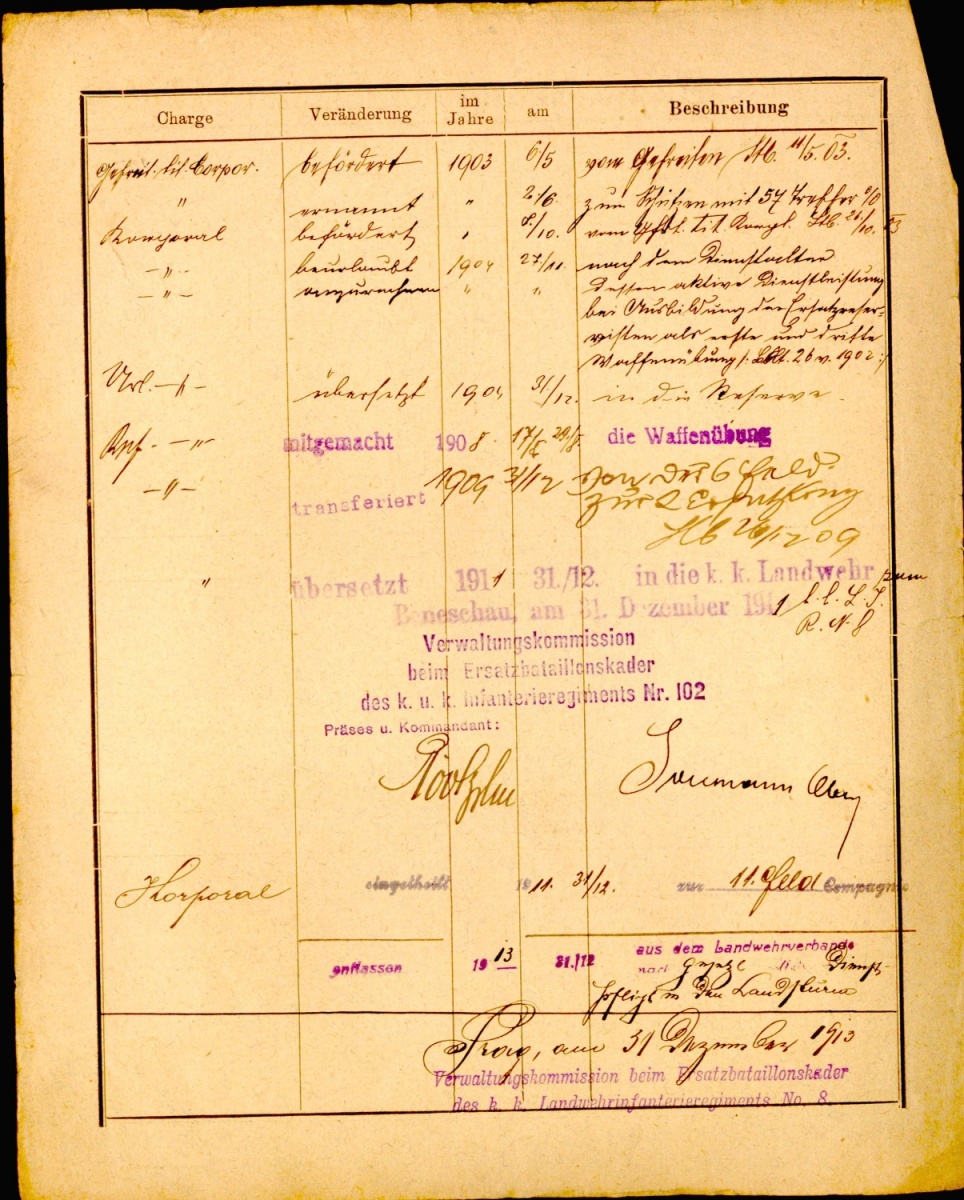 Charge Veränderung im Jahre am Beschreibung
Gefreit. tit. Corpor. befördert 1903 6/5 vom Gefreiten Stb. 11/5. 03.
" ernannt " 2/6. zum Schützen mit 57 Treffer %
Korporal befördert " 8./10. vom Gfrt. tit. Korpl. Stb. 26/10. 03
—"— beurlaubt 1904 27/11. nach dem Dienstalter
—"— anzurechnen " " dessen aktive Dienstleistung
bei Ausbildung der Ersatzreser-
visten als erste und dritte
Waffenübung /: 26 v. 1902 :/
Url. —"— übersetzt 1904 31/12. in die Reserve.
Res. —"— mitgemacht 1908. 17/ 29./ die Waffenübung
—"— transferiert 1909 31/12 von der 6 Feld
zur 2 Ersatzkomp
Stb 26/12 09
" übersetzt 1911 31./12. in die k. k. Landwehr zum
Beneschau, am 31. Dezember 1911 k. k. L. I.
R. N. 8
Verwaltungskommission
beim Ersatzbataillonskader
des k. u. k. Infanterieregiments Nr. 102
Präses u. Kommandant:
Korporal eingetheilt 1911. 31/12. zur 11. Feld Compagnie
entlassen 1913 31./12 aus dem Landwehrverbande
nach Gesetzl. Dienst-
pflicht in den Landsturm
Prag, am 31 Dezember 1913
Verwaltungskommission beim Ersatzbataillonskader
des k. k. Landwehrinfanterieregiments No. 8.